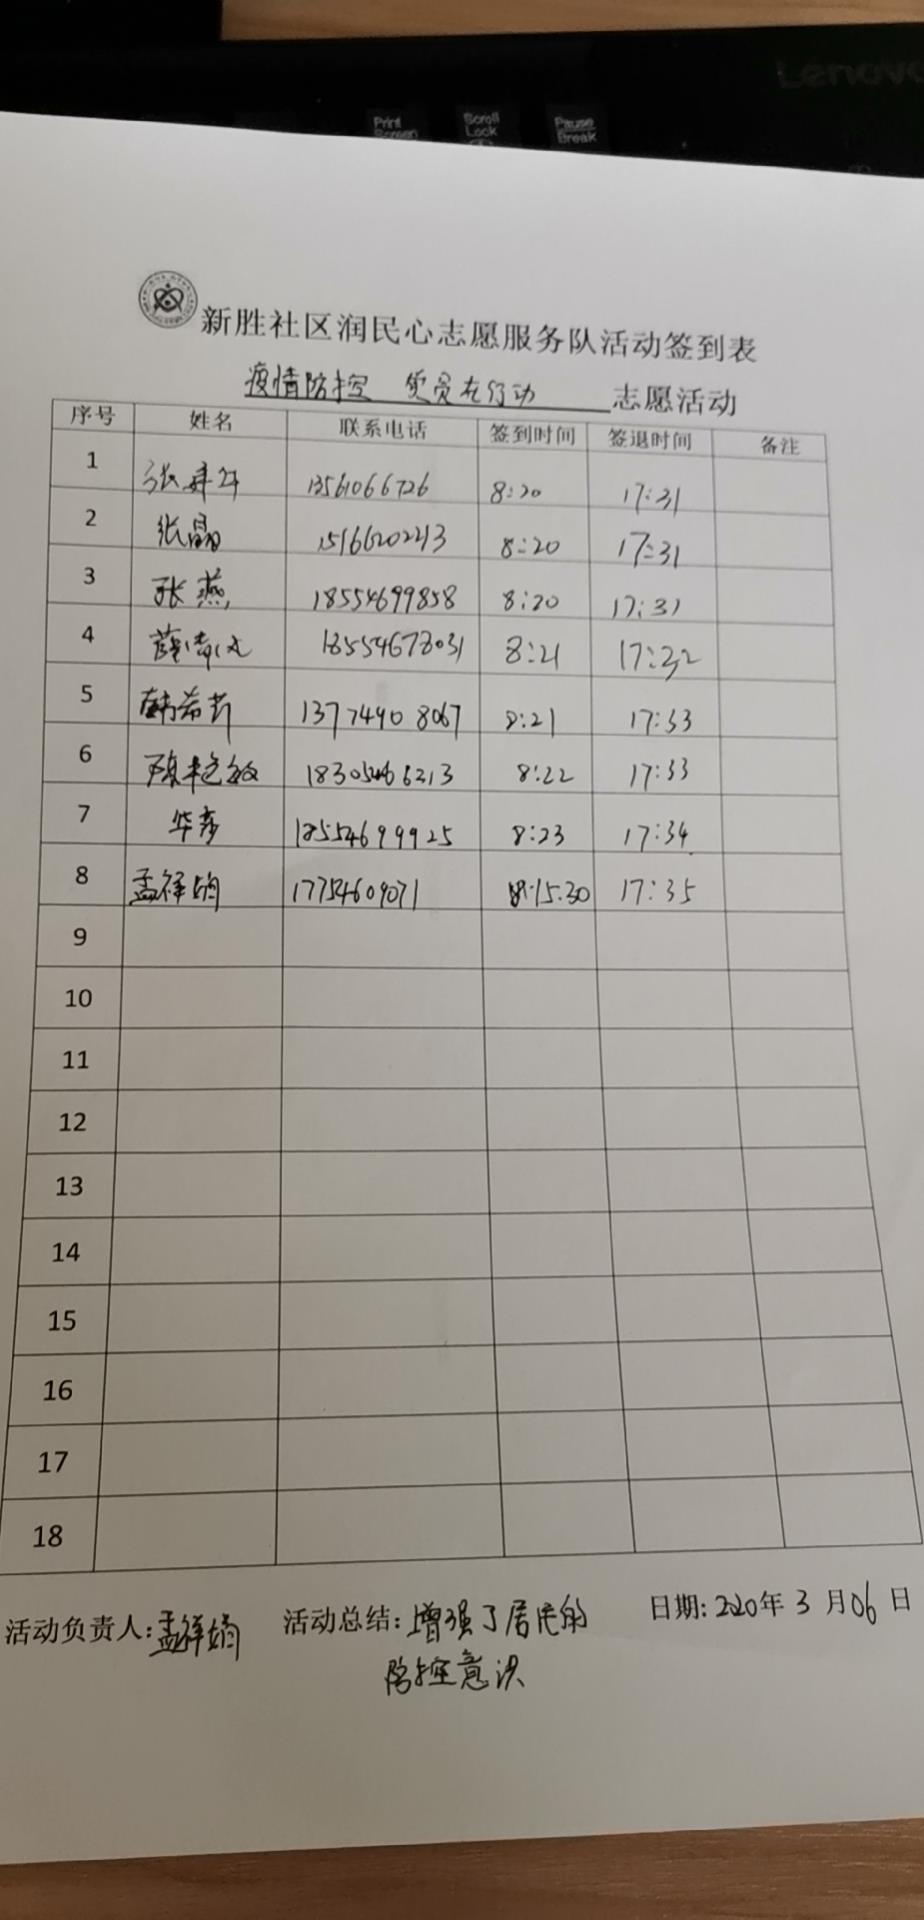 Lenovo
Print Screen
Scroll Lock
Pause Break
新胜社区润民心志愿服务队活动签到表
疫情防控 党员在行动 志愿活动
序号 姓名 联系电话 签到时间 签退时间 备注
1 张建军 13561066726 8:20 17:31
2 张晶 15166202213 8:20 17:31
3 张燕 18554699858 8:20 17:31
4 薛 18554678031 8:21 17:32
5 韩希 13774908067 8:21 17:33
6 陈艳敏 18305466213 8:22 17:33
7 华彦 18554699925 8:23 17:34
8 孟祥娟 17754609071 8:15.30 17:35
9
10
11
12
13
14
15
16
17
18
活动负责人:孟祥娟 活动总结:增强了居民的 日期:2020年3月06日
防控意识